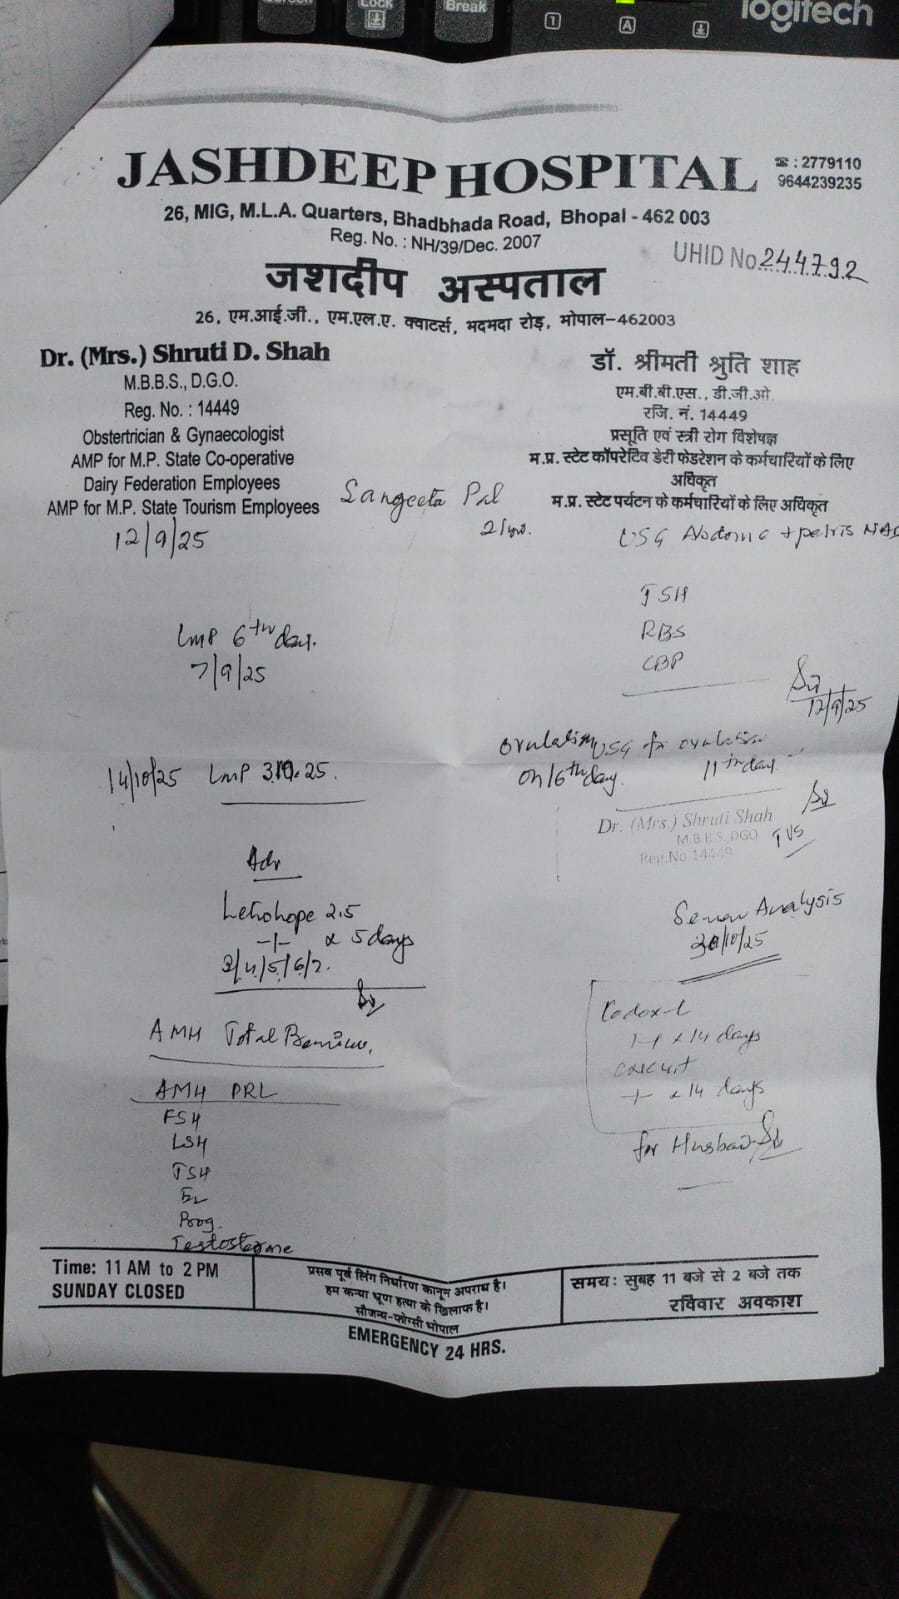 Lock
Break
logitech
JASHDEEP HOSPITAL
☎ : 2779110
9644239235
26, MIG, M.L.A. Quarters, Bhadbhada Road, Bhopal - 462 003
Reg. No. : NH/39/Dec. 2007
UHID No. 244792
जशदीप अस्पताल
26, एम.आई.जी., एम.एल.ए. क्वार्टर्स, भदभदा रोड़, भोपाल-462003
Dr. (Mrs.) Shruti D. Shah
M.B.B.S., D.G.O.
Reg. No. : 14449
Obstertrician & Gynaecologist
AMP for M.P. State Co-operative
Dairy Federation Employees
AMP for M.P. State Tourism Employees
डॉ. श्रीमती श्रुति शाह
एम.बी.बी.एस., डी.जी.ओ.
रजि. नं. 14449
प्रसूति एवं स्त्री रोग विशेषज्ञ
म.प्र. स्टेट कॉपरेटिव डेरी फेडरेशन के कर्मचारियों के लिए
अधिकृत
म.प्र. स्टेट पर्यटन के कर्मचारियों के लिए अधिकृत
Sangeeta Pal
12/9/25
USG Abdomen + pelvis NAD
TSH
RBS
CBP
LMP 6th day.
7/9/25
12/9/25
14/10/25 LMP 3.10.25.
ovulation USG for ovulation
on 16th day. 11th day.
Dr. (Mrs.) Shruti Shah
M.B.B.S., DGO
Reg.No.14449
TVS
Adv
Letrohope 2.5
x 5 days
3/4/5/6/7.
Semen Analysis
30/10/25
x 14 days
x 14 days
for Husband
AMH Total
AMH PRL
FSH
LSH
TSH
E2
Prog.
Testosterone
Time: 11 AM to 2 PM
SUNDAY CLOSED
प्रसव पूर्व लिंग निर्धारण कानूनन अपराध है।
हम कन्या भ्रूण हत्या के खिलाफ है।
सौजन्य-फोग्सी भोपाल
समय: सुबह 11 बजे से 2 बजे तक
रविवार अवकाश
EMERGENCY 24 HRS.